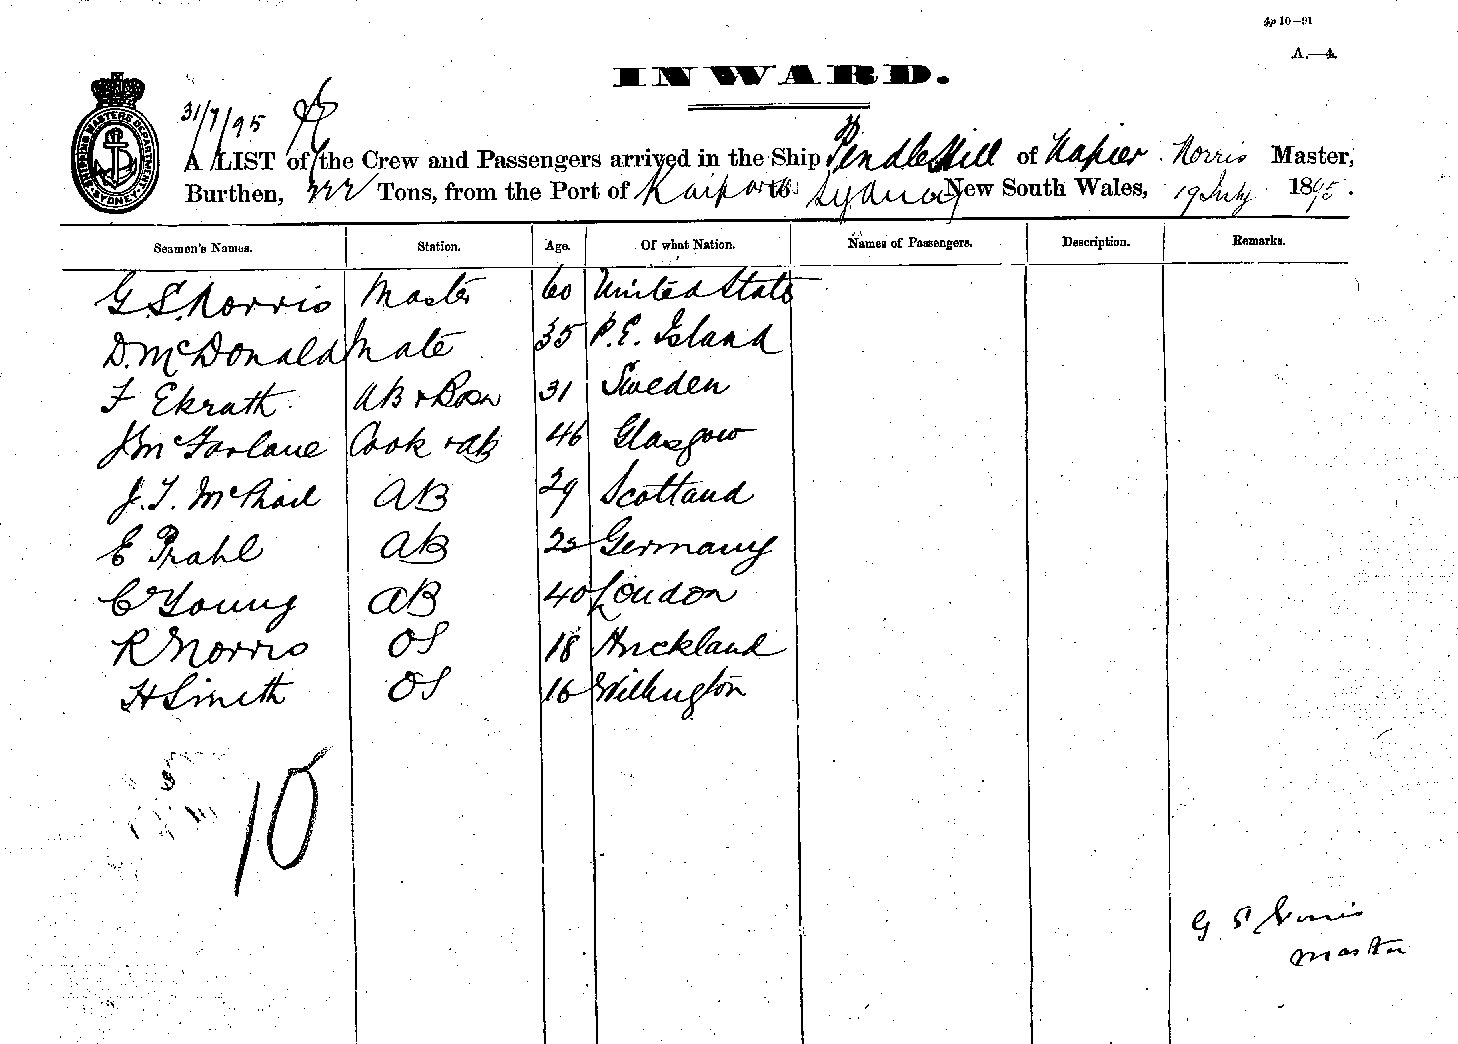 4p 10—91
A.—4.
INWARD.
SHIPPING MASTERS DEPARTMENT SYDNEY
31/7/95
A LIST of the Crew and Passengers arrived in the Ship Pendle Hill of Napier Norris Master,
Burthen, 222 Tons, from the Port of Kaipara to Sydney New South Wales, 19 July 1895.
Seamen's Names. Station. Age. Of what Nation. Names of Passengers. Description. Remarks.
G. S. Norris Master 60 United State
D. McDonald Mate 35 P. E. Island
F Ekrath AB & Bosn 31 Sweden
J McFarlane Cook & AB 46 Glasgow
J. T. McPhail AB 29 Scotland
E Prahl AB Germany
C Young AB 40 London
R Norris OS 18 Auckland
H Smith OS 16 Wellington
10
G S Norris
Master